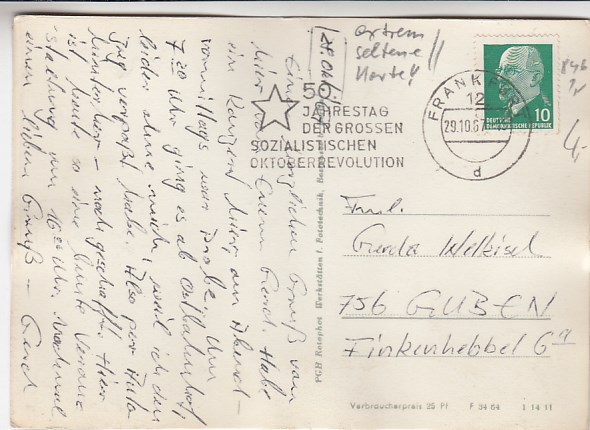 28. Okt.
extrem
seltene
Karte!!
50.
JAHRESTAG
DER GROSSEN
SOZIALISTISCHEN
OKTOBERREVOLUTION
FRANKFURT
12
29.10.67
d
10
DEUTSCHE
DEMOKRATISCHE REPUBLIK
846
4,-
Einen herzlichen Gruß von
hier Euern Gerd. Habe
ein Konzert hier am Abend –
vormittags war Probe. Um
7.20 Uhr ging es ab Ostbahnhof,
leider ohne mich, weil ich den
Zug verpaßt habe. Also per Auto
hinterher – noch geschafft. Hier
ist heute so eine bunte
um 16.00 Uhr. Nochmal
einen lieben Gruß – Gerd
PGH Rotophot Werkstätten f. Fototechnik,
Frl.
Gerda
756 GUBEN
Finkenhebbel 6a
Verbraucherpreis 25 Pf F 34 64 I 14 11